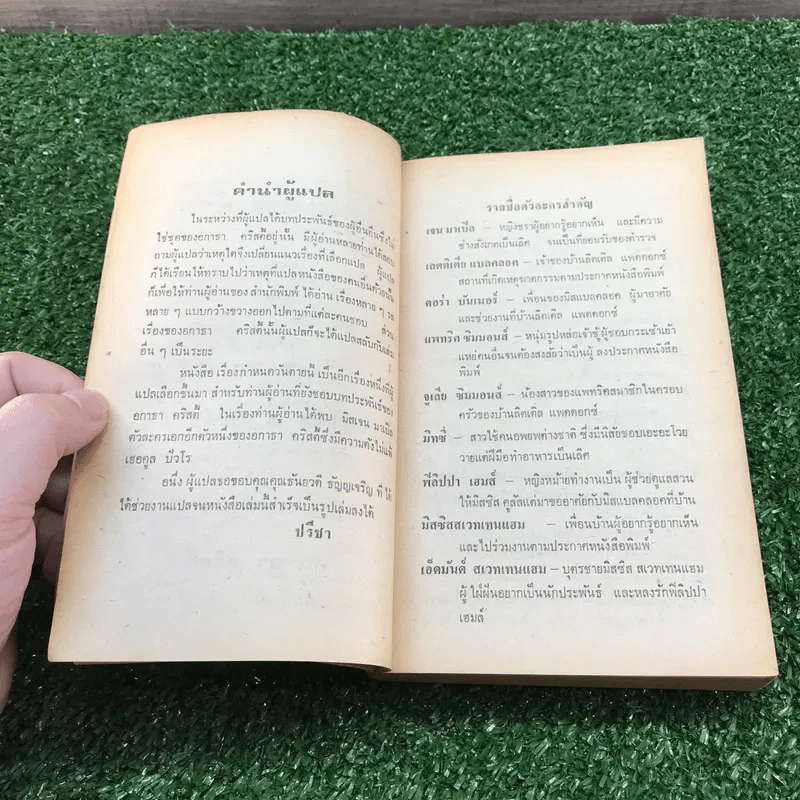 คำนำผู้แปล
ในระหว่างที่ผู้แปลได้บทประพันธ์ของผู้อื่นอื่นซึ่งไม่
ใช่ชุดของอกาธา คริสตี้อยู่นั้น มีผู้อ่านหลายท่านได้สอบ
ถามผู้แปลว่าเหตุใดจึงเปลี่ยนแนวเรื่องที่เลือกแปล ผู้แปล
ก็ได้เรียนให้ทราบไปว่าเหตุที่แปลหนังสือของคนอื่นด้วยนั้น
ก็เพื่อให้ท่านผู้อ่านของ สำนักพิมพ์ ได้อ่าน เรื่องหลาย ๆ รส
หลาย ๆ แบบกว้างขวางออกไปตามที่แต่ละคนชอบ ส่วน
เรื่องของอกาธา คริสตี้นั้นผู้แปลก็จะได้แปลสลับกับเล่ม
อื่น ๆ เป็นระยะ
หนังสือ เรื่อง กำหนดวันตายนี้ เป็นอีกเรื่องหนึ่งที่ผู้
แปลเลือกขึ้นมา สำหรับท่านผู้อ่านที่ยังชอบบทประพันธ์ของ
อกาธา คริสตี้ ในเรื่องท่านผู้อ่านได้พบ มิสเจน มาเปิ้ล
ตัวละครเอกอีกตัวหนึ่งของอกาธา คริสตี้ซึ่งมีความดังไม่แพ้
เฮอคูล ปัวโร
อนึ่ง ผู้แปลขอขอบคุณคุณธันยวดี ธัญญเจริญ ที่ ได้
ได้ช่วยงานแปลจนหนังสือเล่มนี้สำเร็จเป็นรูปเล่มลงได้
ปรีชา
รายชื่อตัวละครสำคัญ
เจน มาเปิ้ล – หญิงชราผู้อยากรู้อยากเห็น และมีความ
ช่างสังเกตเป็นเลิศ จนเป็นที่ยอมรับของตำรวจ
เลตติเตีย แบลคลอค – เจ้าของบ้านลิตเติล แพดดอกซ์
สถานที่เกิดเหตุฆาตกรรมตามประกาศหนังสือพิมพ์
ดอร่า บันเนอร์ – เพื่อนของมิสแบลคลอค ผู้มาอาศัย
และช่วยงานที่บ้านลิตเติล แพดดอกซ์
แพทริค ซิมมอนส์ – หนุ่มรูปหล่อเจ้าชู้ ผู้ชอบกระเซ้าเย้า
แหย่คนอื่นจนต้องสงสัยว่าเป็นผู้ ลงประกาศหนังสือ
พิมพ์
จูเลีย ซิมมอนส์ – น้องสาวของแพทริคสมาชิกในครอบ
ครัวของบ้านลิตเติล แพดดอกซ์
มิทซี่ – สาวใช้คนอพยพต่างชาติ ซึ่งมีนิสัยชอบเอะอะโวย
วายแต่ฝีมือทำอาหารเป็นเลิศ
ฟิลิปปา เฮมส์ – หญิงหม้ายทำงานเป็น ผู้ช่วยดูแลสวน
ให้มิสซิส ลูคัสแต่มาขออาศัยกับมิสแบลคลอคที่บ้าน
มิสซิสสเวทเทนแฮม – เพื่อนบ้านผู้อยากรู้อยากเห็น
และไปร่วมงานตามประกาศหนังสือพิมพ์
เอ็ดมันด์ สเวทเทนแฮม – บุตรชายมิสซิส สเวทเทนแฮม
ผู้ ใฝ่ฝันอยากเป็นนักประพันธ์ และหลงรักฟิลิปปา
เฮมส์